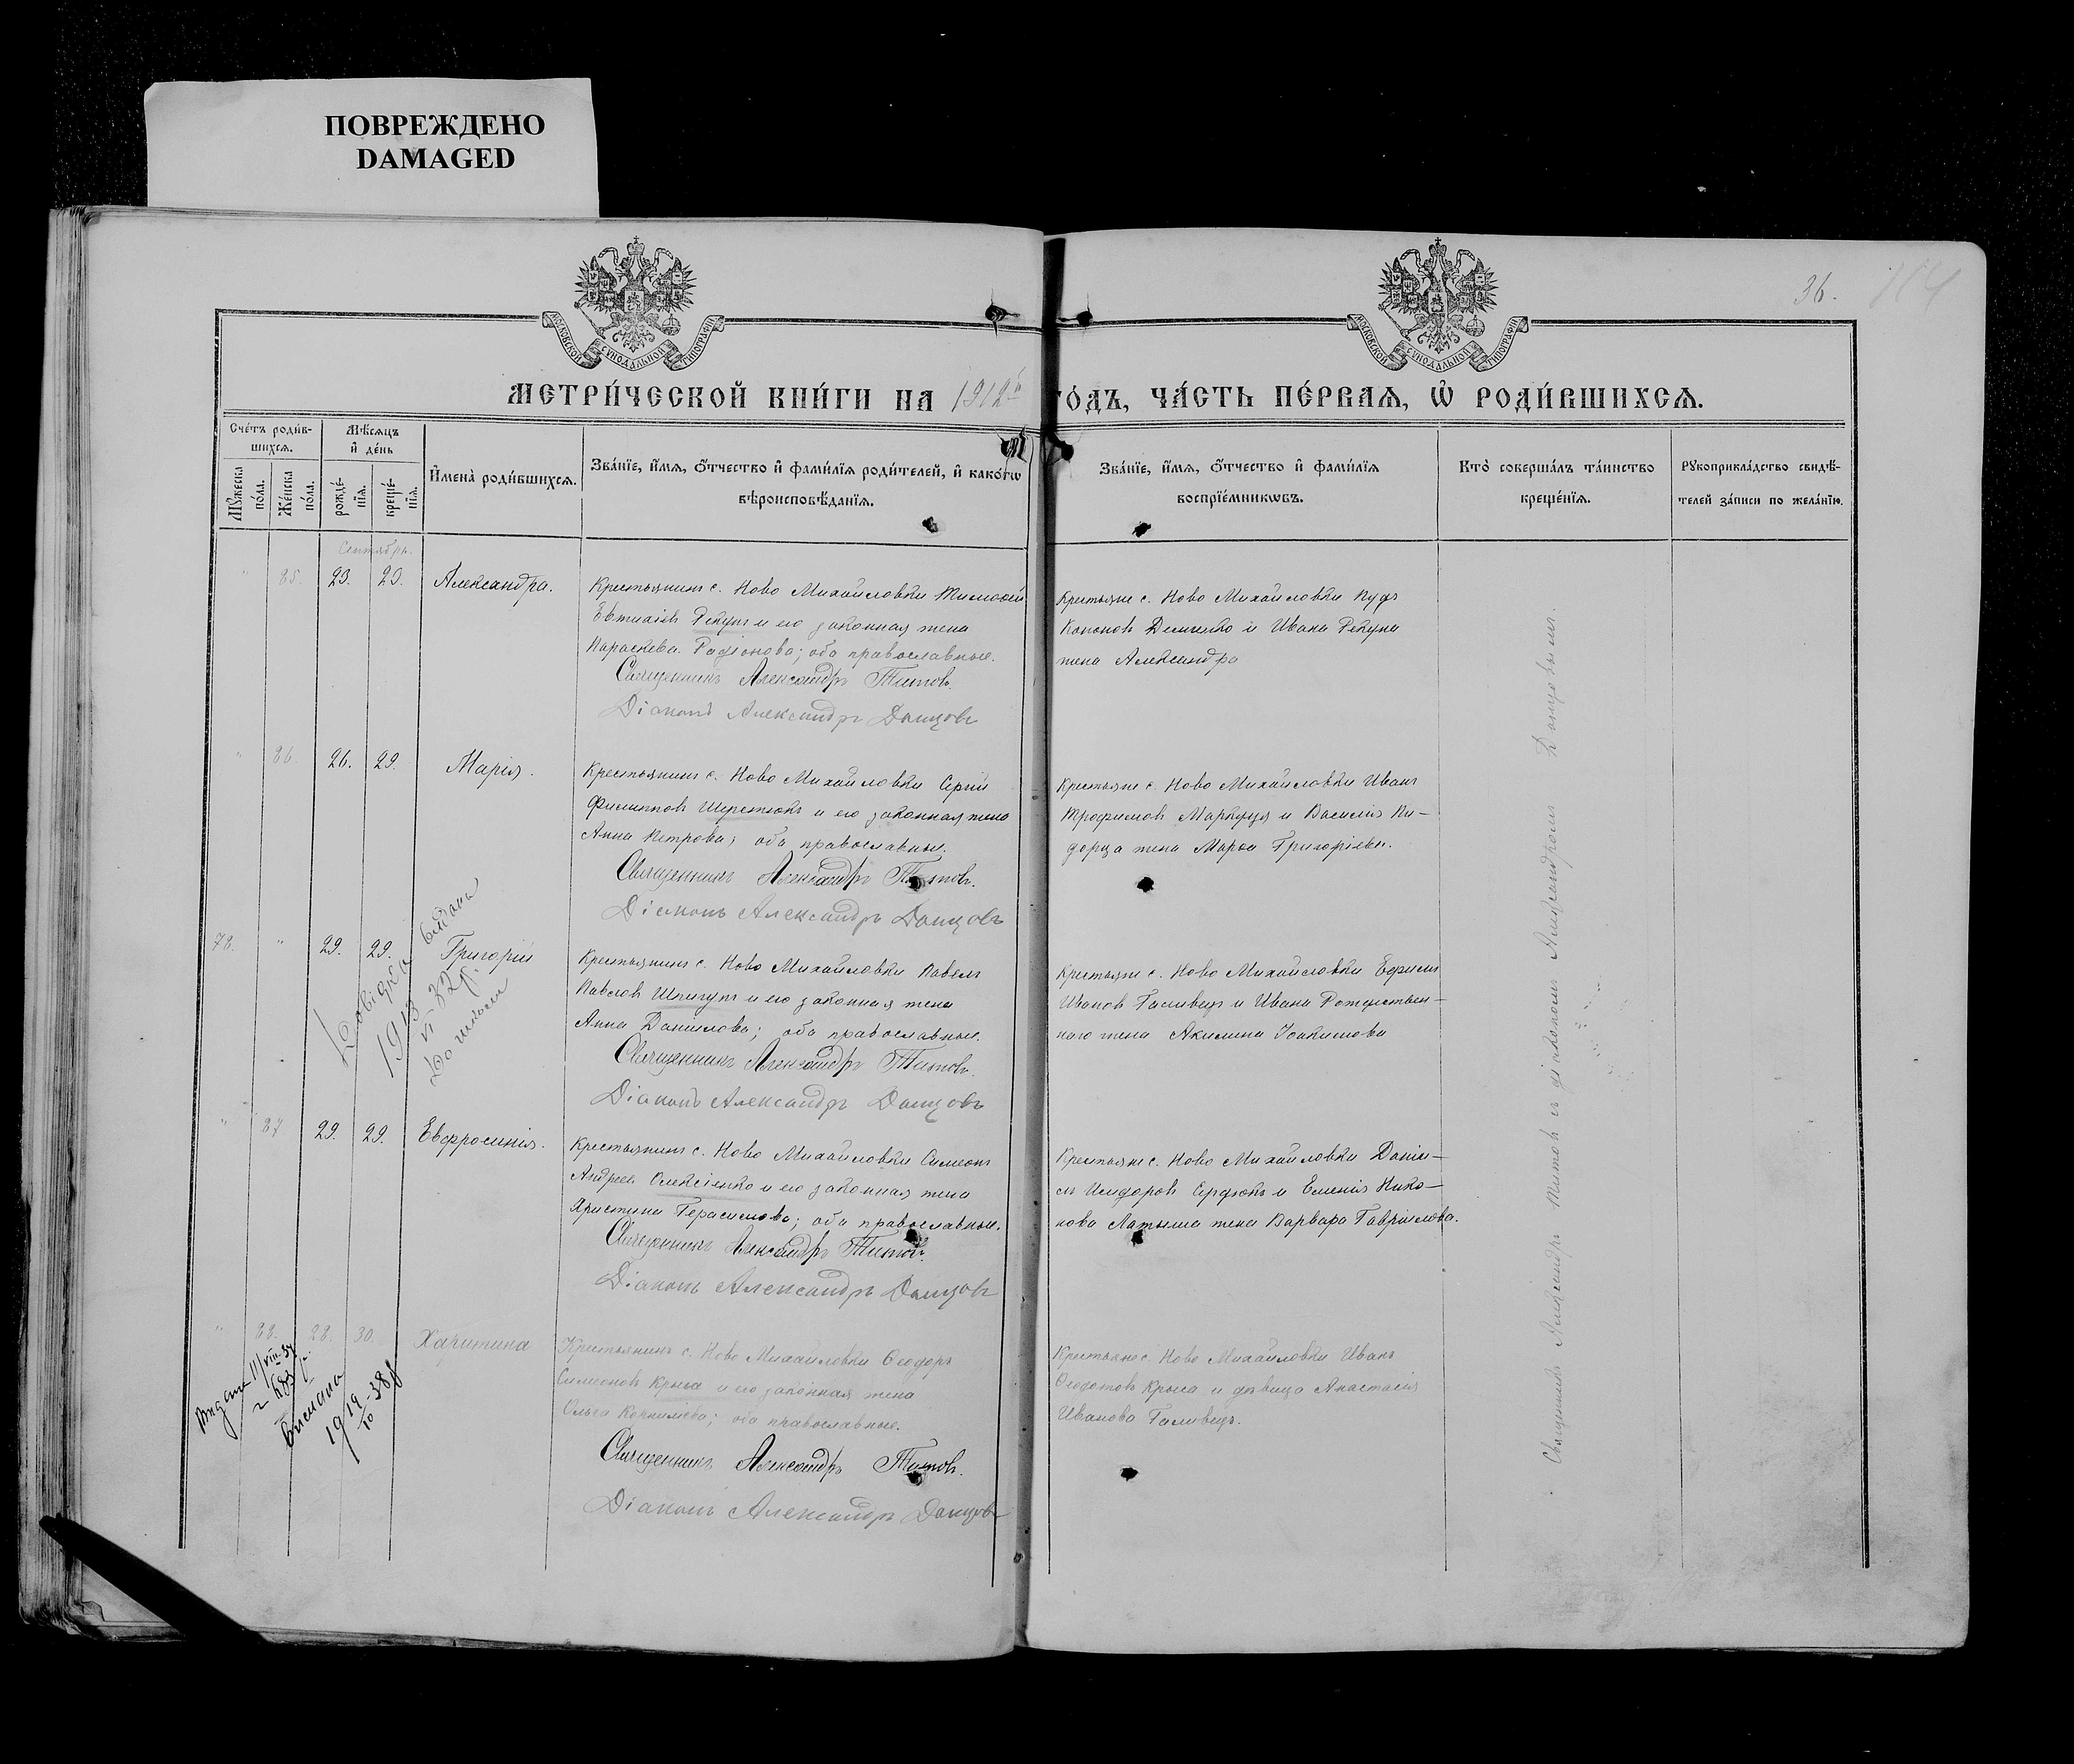 ПОВРЕЖДЕНО
DAMAGED
МОСКОВСКОЙ СѴНОДАЛЬНОЙ ТИПОГРАФІИ
МОСКОВСКОЙ СѴНОДАЛЬНОЙ ТИПОГРАФІИ
36.
МЕТРИ́ЧЕСКОЙ КНИ́ГИ НА 1912й ГО́ДЪ, ЧА́СТЬ ПЕ́РВАѦ, Ѡ РОДИ́ВШИХСѦ.
Сче́тъ роди́в-
шихсѧ.
Мꙋжеска по́ла.
Же́нска по́ла.
Мѣ́сѧцъ
и҆ де́нь
рожде́-
нїѧ.
креще́-
нїѧ.
И҆мена̀ роди́вшихсѧ.
Зва́нїе, и҆́мѧ, ѻ҆́тчество и҆ фами́лїѧ роди́телей, и҆ како́гѡ
вѣроисповѣ́данїѧ.
Зва́нїе, и҆́мѧ, ѻ҆́тчество и҆ фами́лїѧ
воспрїе́мникѡвъ.
Кто̀ соверша́лъ та́инство
креще́нїѧ.
Рꙋкоприкла́дство свидѣ́-
телей за́писи по жела́нїю.
Сентябрь.
" 85. 23. 29. Александра.
Крестьянинъ с. Ново Михайловки Тимофей
Евтихіевъ Рекунъ и его законная жена
Параскева Радіонова; оба православные.
Священникъ Александръ Титовъ.
Діаконъ Александръ Донцовъ
Крестьяне с. Ново Михайловки Іудъ
Кононовъ Демченко и Ивана Рекуна
жена Александра
" 86. 26. 29. Марія.
Крестьянинъ с. Ново Михайловки Сергій
Филипповъ Шерстюкъ и его законная жена
Анна Петрова; оба православные.
Священникъ Александръ Титовъ.
Діаконъ Александръ Донцовъ
Крестьяне с. Ново Михайловки Иванъ
Трофимовъ Маркуца и Василія Пи-
дорца жена Марфа Григорьева.
78. " 29. 29. Григорій
Довідка видана
1913
VI 32р.
До школи
Крестьянинъ с. Ново Михайловки Павелъ
Павловъ Шпигунъ и его законная жена
Анна Данилова; оба православные.
Священникъ Александръ Титовъ.
Діаконъ Александръ Донцовъ
Крестьяне с. Ново Михайловки Ефимъ
Ивановъ Галивецъ и Ивана Рождествен-
наго жена Акилина Іоакимова
" 87 29. 29. Евфросинія.
Крестьянинъ с. Ново Михайловки Симеонъ
Андреевъ Олексіенко и его законная жена
Христина Герасимова; оба православные.
Священникъ Александръ Титовъ.
Діаконъ Александръ Донцовъ
Крестьяне с. Ново Михайловки Даніи-
лъ Исидоровъ Сердюкъ и Евменія Нико-
нова Латыша жена Варвара Гавріилова.
" 88. 28. 30. Харитина
Видана 11/VIII-34
Виписана
19 19/10 38р
Крестьянинъ с. Ново Михайловки Ѳеодоръ
Симеоновъ Крыса и его законная жена
Ольга Корнилієва; оба православные.
Священникъ Александръ Титовъ.
Діаконъ Александръ Донцовъ
Крестьяне с. Ново Михайловки Иванъ
Ѳеодотовъ Крыса и дѣвица Анастасія
Иванова Галивецъ.
Священникъ Александръ Титовъ съ діакономъ Александромъ Донцовымъ.